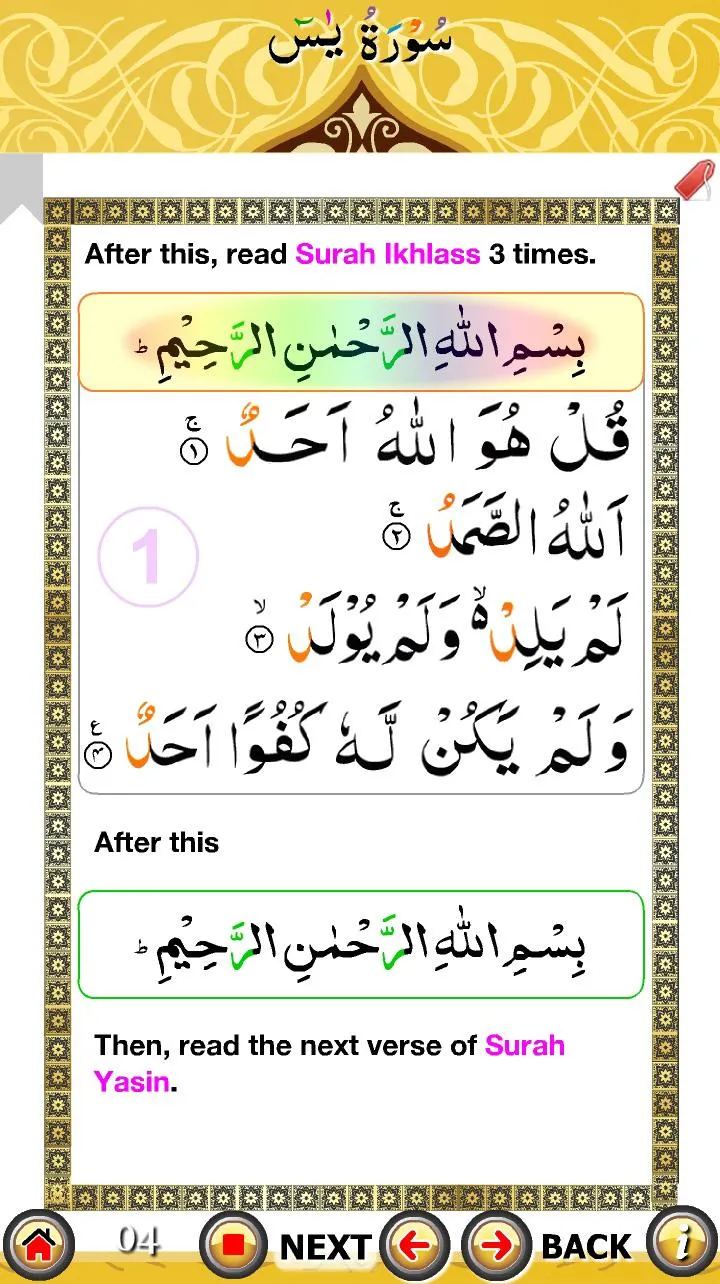 سُوْرَةُ يٰسٓ
After this, read Surah Ikhlass 3 times.
بِسْمِ اللّٰهِ الرَّحْمٰنِ الرَّحِيْمِ ؕ
قُلْ هُوَ اللّٰهُ اَحَدٌ ۚ ﴿۱﴾
اَللّٰهُ الصَّمَدُ ۚ ﴿۲﴾
1
لَمْ يَلِدْ ۙ۬ وَلَمْ يُوْلَدْ ۙ ﴿۳﴾
وَلَمْ يَكُنْ لَّهٗ كُفُوًا اَحَدٌ ﴿۴﴾ ع
After this
بِسْمِ اللّٰهِ الرَّحْمٰنِ الرَّحِيْمِ ؕ
Then, read the next verse of Surah
Yasin.
04 NEXT BACK i